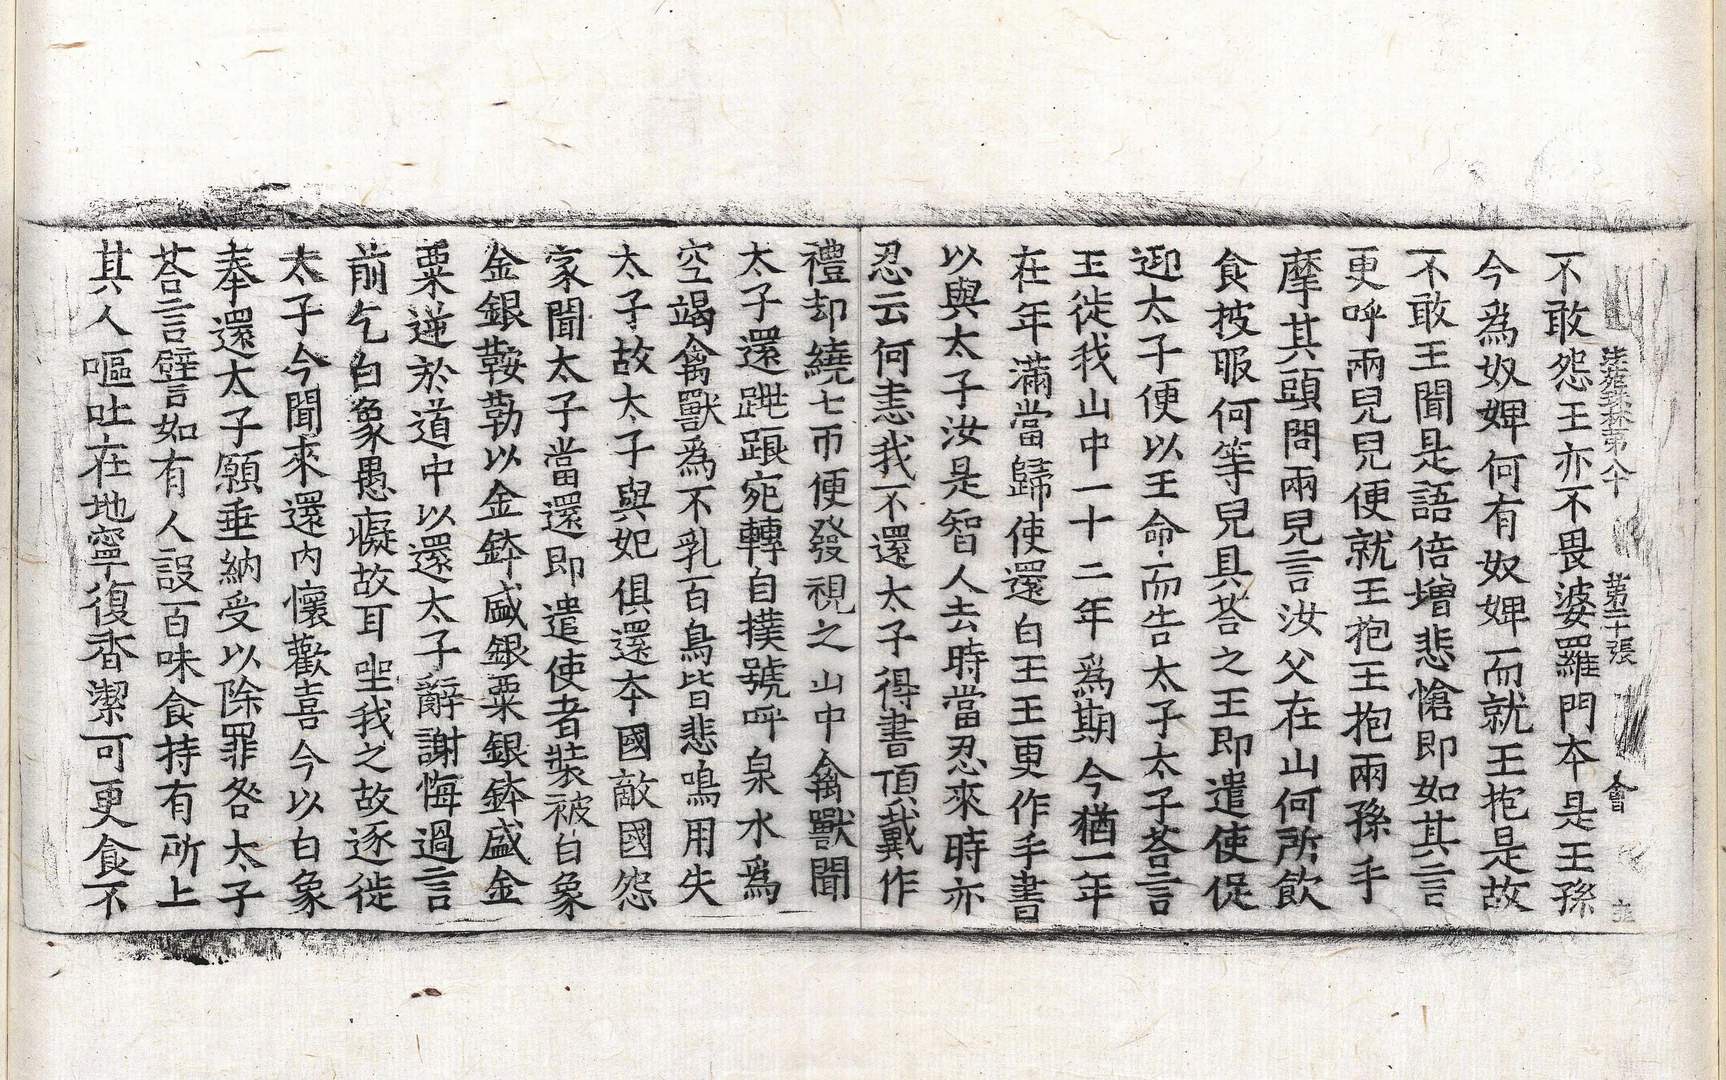 法苑珠林第八十 第二十張 會
不敢怨王亦不畏婆羅門本是王孫
今爲奴婢何有奴婢而就王抱是故
不敢王聞是語倍增悲愴即如其言
更呼兩兒兒便就王抱王抱兩孫手
摩其頭問兩兒言汝父在山何所飲
食披服何等兒具荅之王即遣使促
迎太子便以王命而告太子太子荅言
王徙我山中一十二年爲期今猶一年
在年滿當歸使還白王王更作手書
以與太子汝是智人去時當忍來時亦
忍云何恚我不還太子得書頂戴作
禮却繞七帀便發視之山中禽獸聞
太子還跳踉宛轉自撲號呼泉水爲
空竭禽獸爲不乳百鳥皆悲鳴用失
太子故太子與妃俱還本國敵國怨
家聞太子當還即遣使者裝被白象
金銀鞍勒以金鉢盛銀粟銀鉢盛金
粟逆於道中以還太子辭謝悔過言
前乞白象愚癡故耳坐我之故逐徙
太子今聞來還内懷歡喜今以白象
奉還太子願垂納受以除罪咎太子
荅言譬如有人設百味食持有所上
其人嘔吐在地寧復香潔可更食不